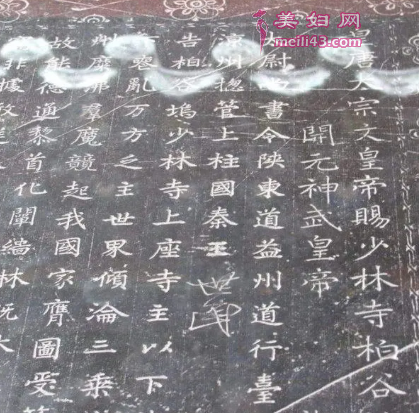 美妇网
meili43.com
皇唐太宗文皇帝賜少林寺柏谷
開元神武皇帝
尉書令陝東道益州道行臺
州捴管上柱國秦王世民
告柏谷塢少林寺上座寺主以下
喪亂万方乏主世界傾淪三乘
州糜沸羣魔競起我國家膺圖受
故能德通黎首化闡緇林既
非據敢